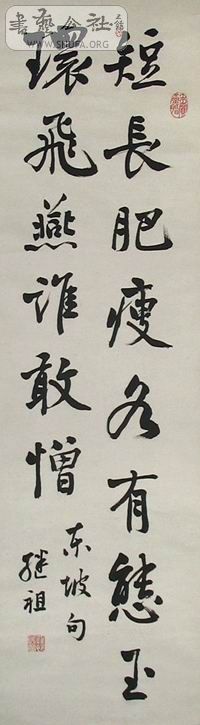 短長肥瘦各有態玉
環飛燕誰敢憎
東坡句
継祖
書艺公社
WWW.SHUFA.ORG